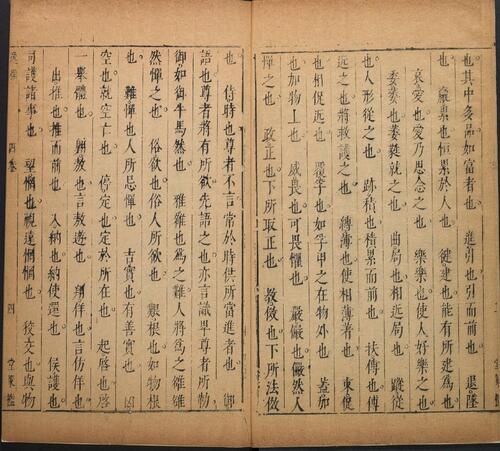 也其中多品如富者也　進引也引而前也　退墜
也　羸累也恒累於人也　健建也能有所建爲也
哀愛也愛乃思念之也　樂樂也使人好樂之也
委萎也萎蕤就之也　曲局也相近局也　蹤從
也人形從之也　跡積也積累而前也　扶傅也傅
近之也將救護之也　縛薄也使相薄著也　束促
也相促近也　覆孚也如孚甲之在物外也　蓋加
也加物上也　威畏也可畏懼也　嚴儼也儼然人
憚之也　政正也下所取正也　教傚也下所法傚
也　侍時也尊者不言常於時供所當進者也　御
語也尊者將有所欲先語之也亦言職卑尊者所勒
御如御牛馬然也　雅雒也爲之難人將爲之雒雒
然憚之也　俗欲也俗人所欲也　艱根也如物根
也　難憚也人所忌憚也　吉實也有善實也　凶
空也就空亡也　停定也定於所在也　起啓也啓
一舉體也　翱敖也言敖遊也　翔佯也言仿佯也
出推也推而前也　入納也納使還也　候護也
司護諸事也　望惘也視遠惘惘也　狡交也與物
四卷　四　堂策檻